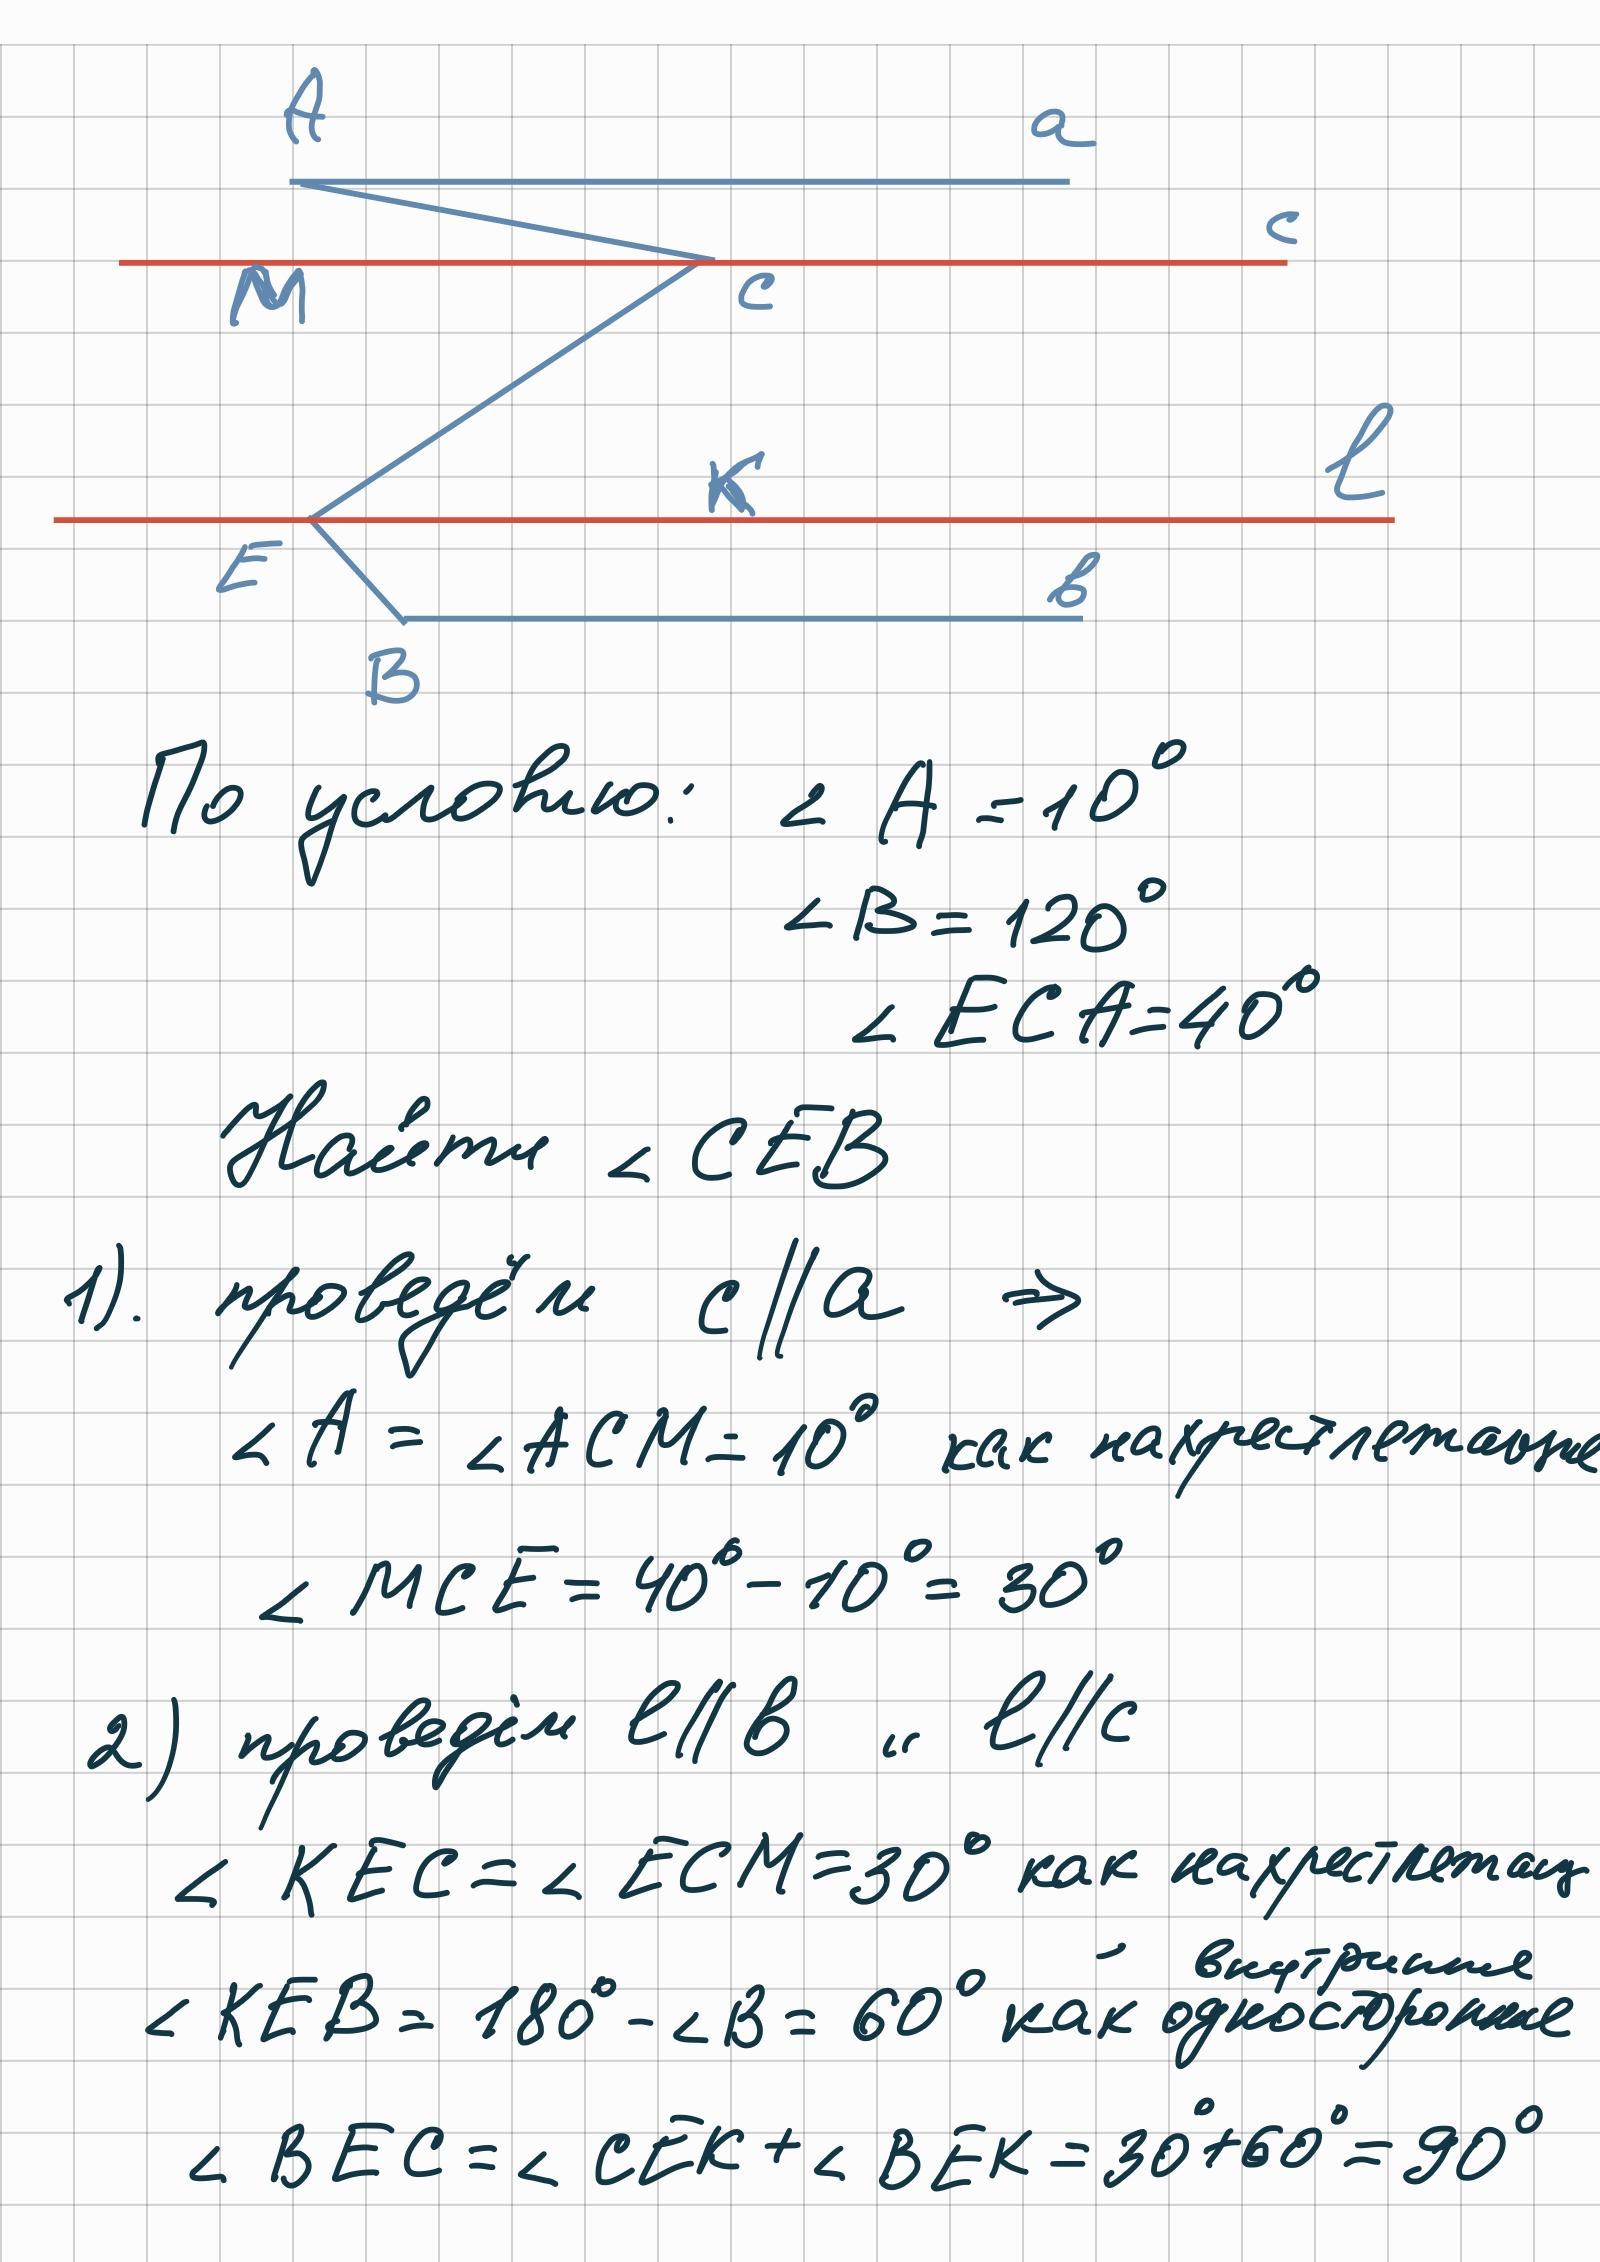 A a
c
M C
K l
E b
B
По условию: ∠ A = 10°
∠ B = 120°
∠ ECA = 40°
Найти ∠ CEB
1). проведём c // a ⇒
∠ A = ∠ ACM = 10° как накрестлежащие
∠ MCE = 40° - 10° = 30°
2) проведём l // b „ l // c
∠ KEC = ∠ ECM = 30° как накрестлежащ
внутринние
∠ KEB = 180° - ∠ B = 60° как односторонние
∠ BEC = ∠ CEK + ∠ BEK = 30° + 60° = 90°